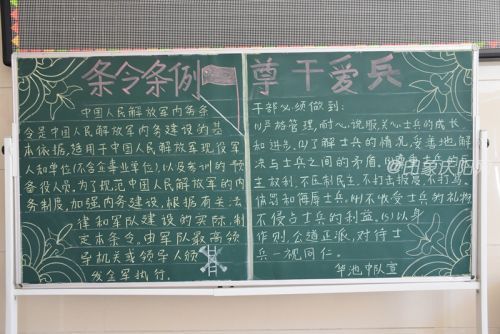 条令条例
中国人民解放军内务条
令是中国人民解放军内务建设的基
本依据,适用于中国人民解放军现役军
人和单位(不含企事业单位),以及参训的预
备役人员,为了规范中国人民解放军的内
务制度,加强内务建设,根据有关法
律和军队建设的实际,制
定本条令,由军队最高领
导机关或领导人颁
发全军执行.
尊干爱兵
干部必须做到:
(1)严格管理,耐心说服,关心士兵的成长
和进步.(2)了解士兵的情况,妥善地解
决与士兵之间的矛盾.
主权利,不压制民主,不打击报复,不打骂,
体罚和侮辱士兵.(4)不收受士兵的礼物
不侵占士兵的利益.(5)以身
作则,公道正派,对待士
兵一视同仁.
华池中队宣